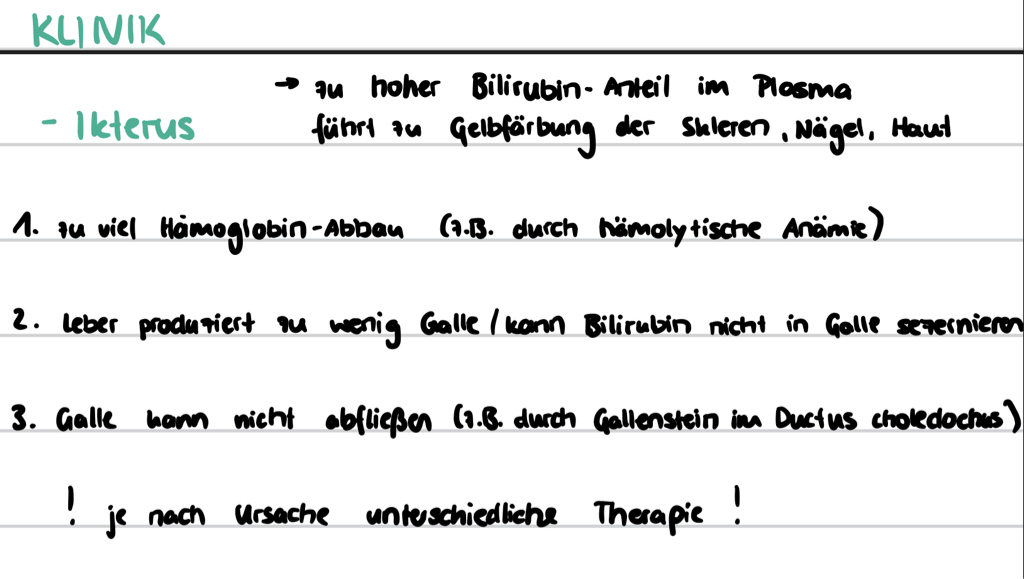 KLINIK
→ zu hoher Bilirubin-Anteil im Plasma
- Ikterus führt zu Gelbfärbung der Skleren, Nägel, Haut
1. zu viel Hämoglobin-Abbau (z.B. durch hämolytische Anämie)
2. Leber produziert zu wenig Galle / kann Bilirubin nicht in Galle sezernieren
3. Galle kann nicht abfließen (z.B. durch Gallenstein im Ductus choledochus)
! je nach Ursache unterschiedliche Therapie !